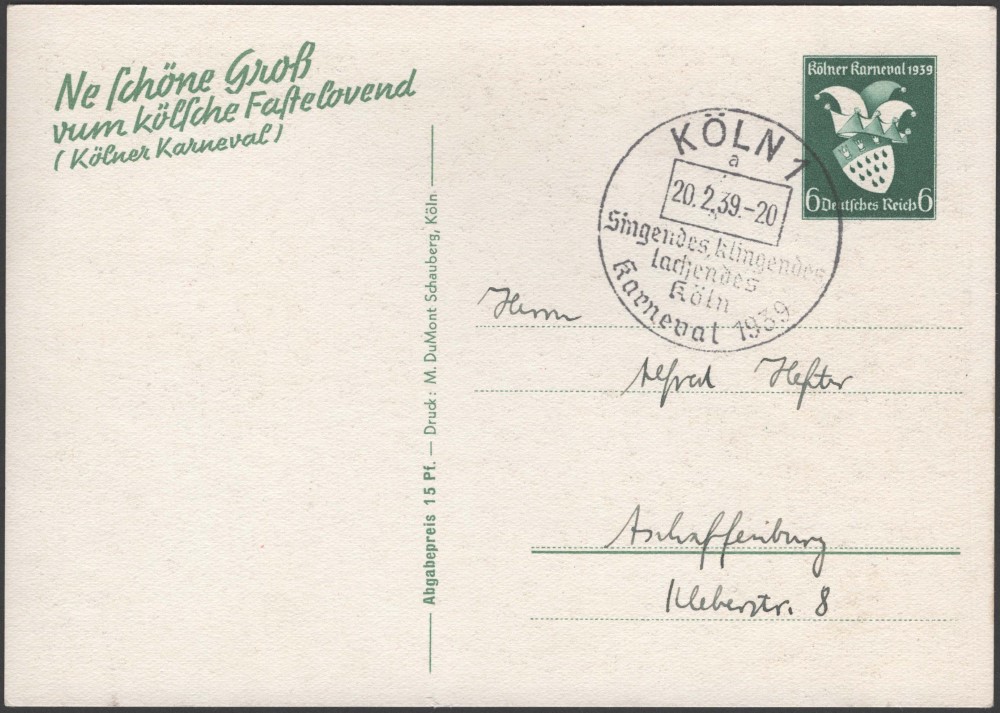 Ne schöne Groß
vum kölsche Fastelovend
(Kölner Karneval)
Abgabepreis 15 Pf. — Druck: M. DuMont Schauberg, Köln
Kölner Karneval 1939
6 Deutsches Reich 6
KÖLN 1
a
20.2.39.-20
Singendes, klingendes
lachendes
Köln
Karneval 1939
Herrn
Alfred Hefter
Aschaffenburg
Kleberstr. 8